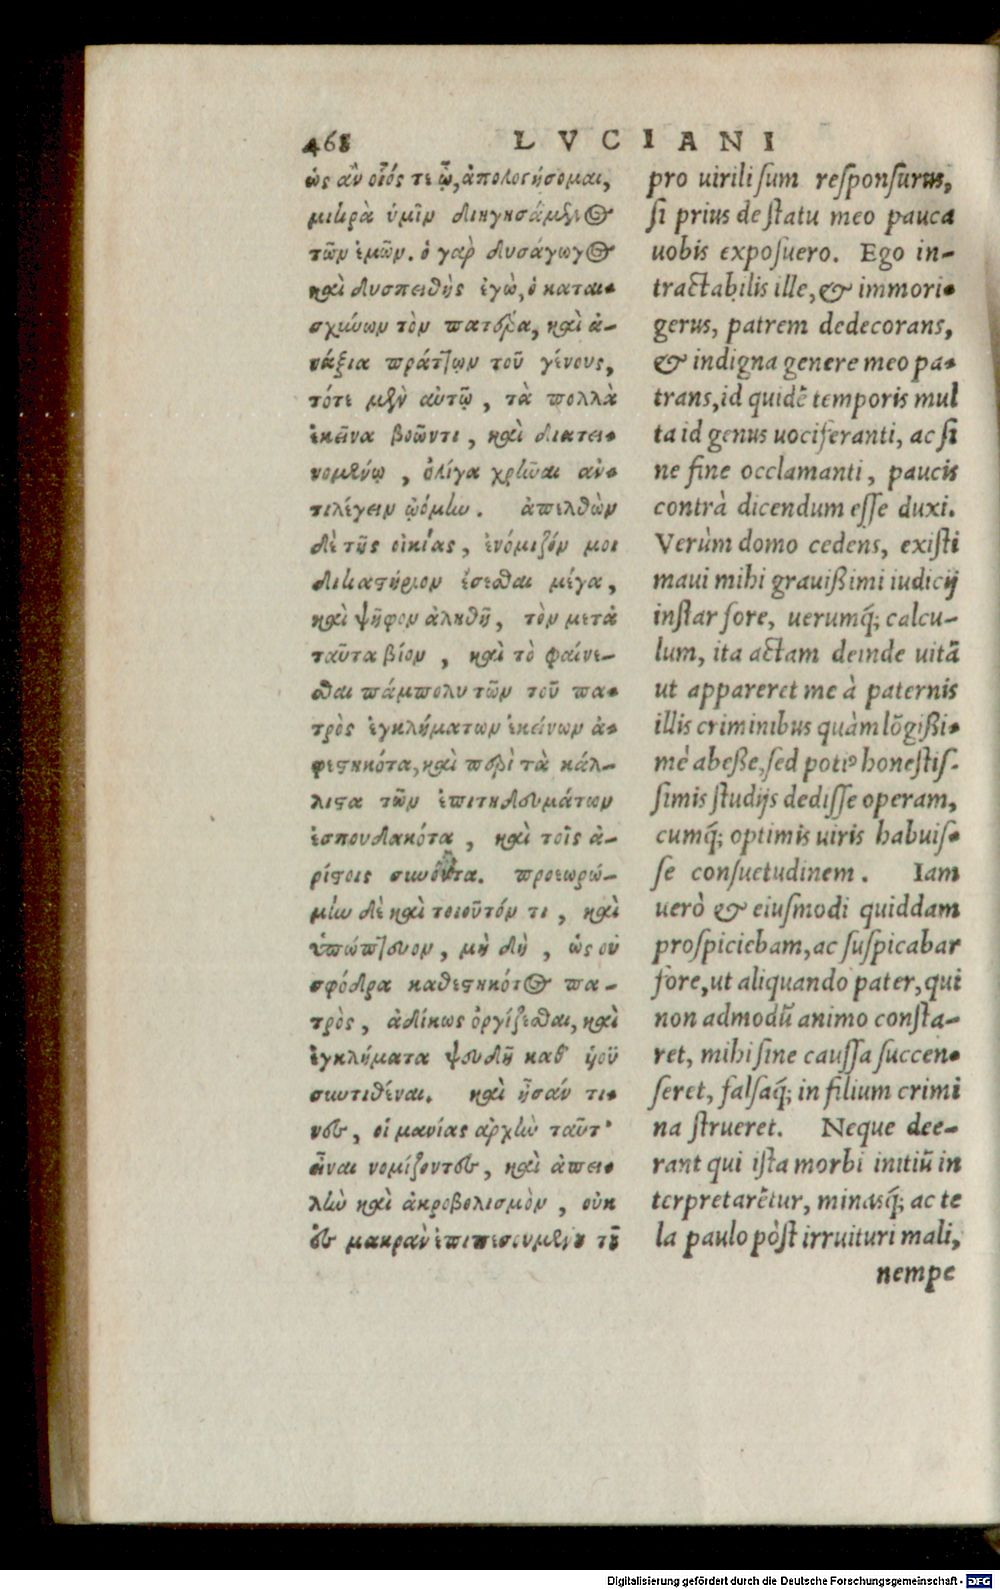 468 LVCIANI
ὡς ἂν οἷός τε ὦ, ἀπολογήσομαι,
μικρὰ ὑμῖν διηγησάμενος
τῶν ἐμῶν. ὁ γὰρ δυσάγωγος
καὶ δυσπειθὴς ἐγὼ, ὁ καται-
σχύνων τὸν πατέρα, καὶ ἀ-
νάξια πράττων τοῦ γένους,
τότε μὲν αὐτῷ, τὰ πολλὰ
ἐκεῖνα βοῶντι, καὶ διατει-
νομένῳ, ὀλίγα χρῆναι ἀν-
τιλέγειν ᾠόμην. ἀπελθὼν
δὲ τῆς οἰκίας, ἐνόμιζόν μοι
δικαστήριον ἔσεσθαι μέγα,
καὶ ψῆφον ἀληθῆ, τὸν μετὰ
ταῦτα βίον, καὶ τὸ φαίνε-
σθαι πάμπολυ τῶν τοῦ πα-
τρὸς ἐγκλήματων ἐκείνων ἀ-
φεστηκότα, καὶ περὶ τὰ κάλ-
λιστα τῶν ἐπιτηδευμάτων
ἐσπουδακότα, καὶ τοῖς ἀ-
ρίστοις συνόντα. προεωρώ-
μην δὲ καὶ τοιοῦτόν τι, καὶ
ὑπώπτευον, μὴ δὴ, ὡς οὐ
σφόδρα καθεστηκότος πα-
τρὸς, ἀδίκως ὀργίζεσθαι, καὶ
ἐγκλήματα ψευδῆ καθ' ὑοῦ
συντιθέναι. καὶ ἦσάν τι-
νες, οἱ μανίας ἀρχὴν ταῦτ'
εἶναι νομίζοντες, καὶ ἀπει-
λὴν καὶ ἀκροβολισμὸν, οὐκ
ἐς μακρὰν ἐπιπεσουμένου τοῦ
pro uirili sum responsurus,
si prius de statu meo pauca
uobis exposuero. Ego in-
tractabilis ille, & immori-
gerus, patrem dedecorans,
& indigna genere meo pa-
trans, id quidē temporis mul
ta id genus uociferanti, ac si
ne fine occlamanti, paucis
contrà dicendum esse duxi.
Verùm domo cedens, existi
maui mihi grauißimi iudicij
instar fore, uerumq́; calcu-
lum, ita actam deinde uitā
ut appareret me à paternis
illis criminibus quàm lōgißi-
mè abeße, sed potiꝰ honestis-
simis studijs dedisse operam,
cumq́; optimis uiris habuis-
se consuetudinem. Iam
uerò & eiusmodi quiddam
prospiciebam, ac suspicabar
fore, ut aliquando pater, qui
non admodū animo consta-
ret, mihi sine caussa succen-
seret, falsaq́; in filium crimi
na strueret. Neque dee-
rant qui ista morbi initiū in
terpretarētur, minasq́; ac te
la paulo pòst irruituri mali,
nempe
Digitalisierung gefördert durch die Deutsche Forschungsgemeinschaft - DFG